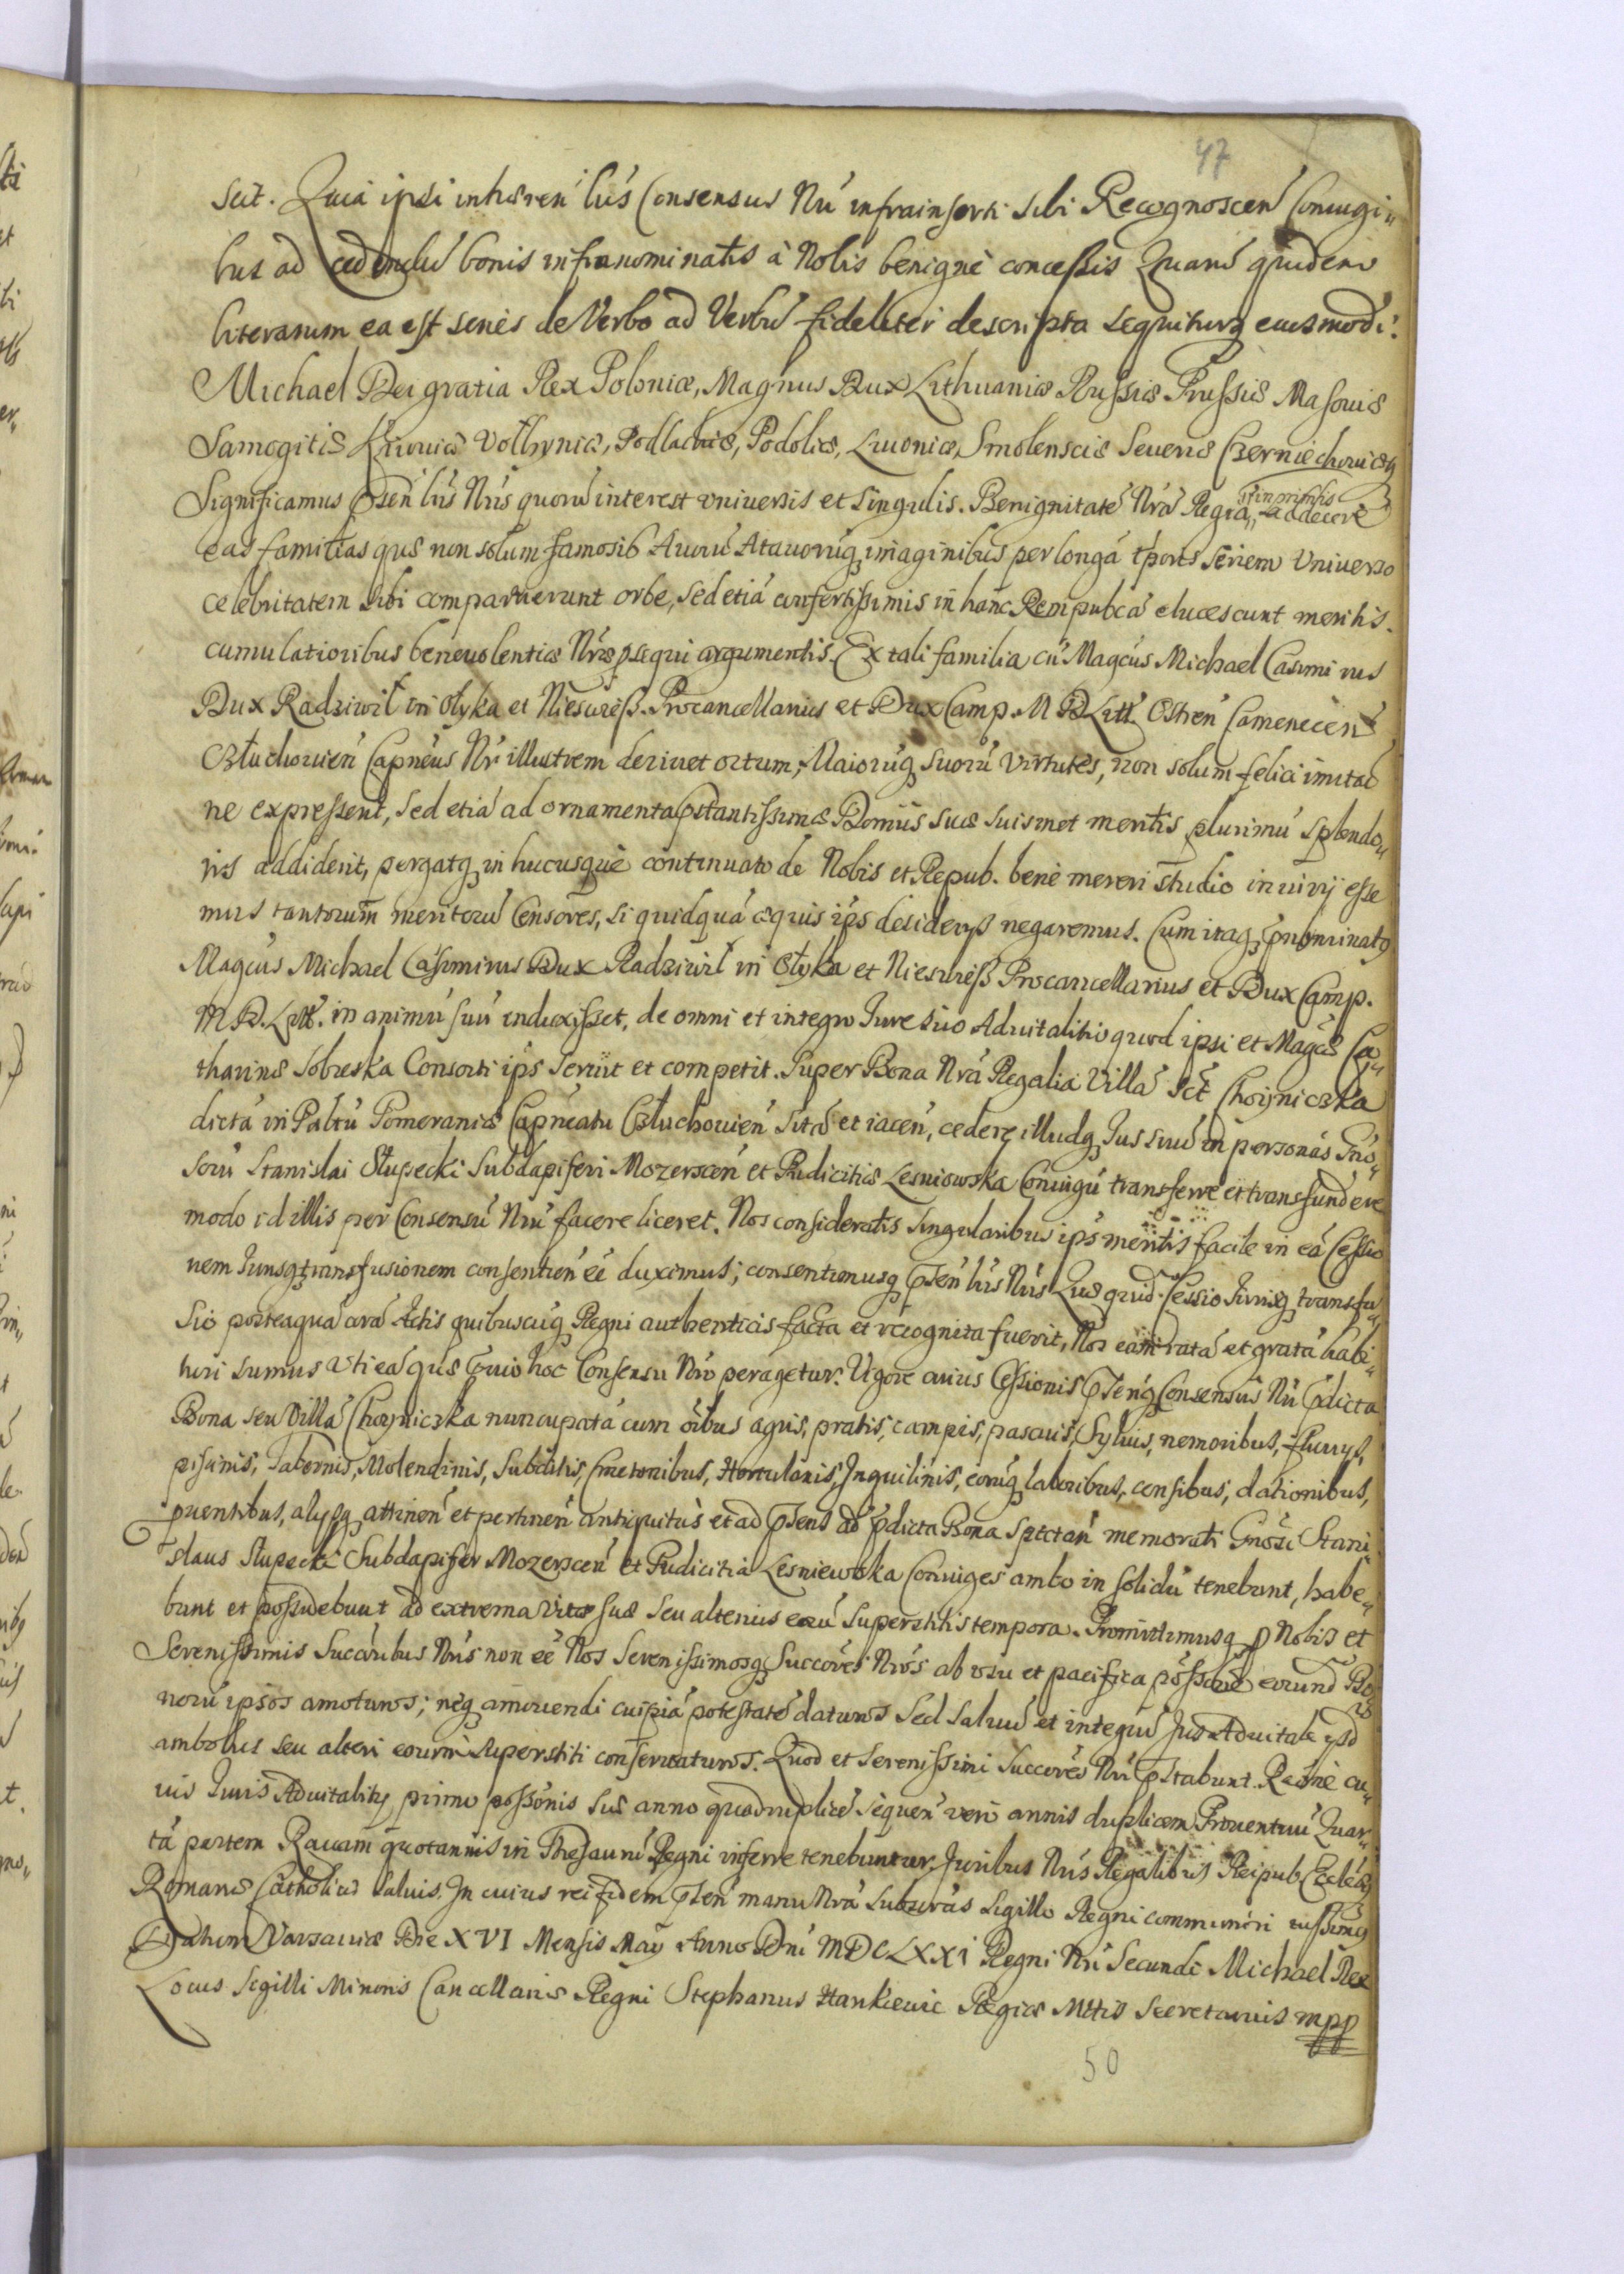 47
scit. Quia ipsi inhæren lũs Consensus Nři infrainserti sibi Recognoscen Coniugi„
bus ad cedendũ bonis infranominatis à Nobis benignè concessis Quarũ quidem
literarum ea est seriès de Verbo ad Verbũ fideliter descripta sequiturq eiusmodi:
Michael Dei gratia Rex Poloniæ, Magnus Dux Lithuaniæ Russiæ Prussiæ Masouiæ
Samogitiæ Kiiouiæ Volhyniæ, Podlachiæ, Podoliæ, Liuoniæ, Smolensciæ Seueriæ Czerniechouiæq
Significamus p̃sen lũs Nřis quorũ interest vniuersis et singulis. Benignitatẽ Nřã Regiã„ inprimis addecere
eas familias quæ non solum famosis Auorũ Atauorũq imaginibus per longã tp̃oris seriem Vniuerso
celebritatem sibi comparauerunt orbe, sed etiã confertissimis in hanc Rempubcã elucescunt meritis.
cumulatioribus beneuolentiæ Nřæ p̱sequi argumentis. Ex tali familia cũ Magcus Michael Casimirus
Dux Radziwił in Ołyka et Nieswieß. Procancellarius et Dux Camp. M D Litt. Ostren Camenecen
Człuchouien Capneus Nř illustrem deriuet ortum, Maiorũq suorũ Virtutes, non solum felici imitaõ
ne expresserit, sed etiã ad ornamenta p̃stantissimæ Domus suæ suismet meritis plurimũ splendo„
ris addiderit, pergatq in hucusquè continuato de Nobis et Repub. benè mereri studio iniurij esse
mus tantorum meritorũ Censores, si quidquã æquis ip̃s desiderijs negaremus. Cum itaq p̃nominatq
Magcus Michael Casimirus Dux Radziwił in Ołyka et Nieswieß Procancellarius et Dux Camp.
M D. Litt. in animũ suũ induxisset, de omni et integro Iure suo Aduitalitio quod ipsi et Magcæ Ca„
tharinæ Sobieska Consorti ip̃s seruit et competit. Super Bona Nřã Regalia Villã sct Choyniczka
dictã in Pałtũ Pomeraniæ Capneatu Człuchouien sitã et iacen, cedere illudq Ius suũ in personas Gño„
sorũ Stanislai Słupecki Subdapiferi Mozerscen et Pudicitiæ Lesniowska Coniugũ transferre et transfundere
modo id illis per Consensũ Nřũ facere liceret. Nos consideratis singularibus ip̃s meritis facile in eã Cessio
nem Iurisq transfusionem consentien ẽẽ duximus; consentimusq p̃sen lũs Nřis Quæ quid. Cessio Iurisq transfu„
sio posteaquã corã Actis quibuscũq Regni authenticis facta et recognita fuerit, Nos eam ratã et gratã habi„
turi sumus Vti eã quæ p̃uio hoc Consensu Nřo peragetur. Vigore cuius Cessionis p̃senq Consensus Nři p̃dicta
Bona seu Villã Choyniczka nuncupatã cum oĩbus agris, pratis, campis, pascuis, Syluis, nemoribus, fluuijs,
piscinis, Tabernis, Molendinis, Subditis, Cmetonibus, Hortulanis, Inquilinis, eorũq laboribus, censibus, dationibus,
puentibus, alijsq attinen et pertinen antiquitùs et ad p̃sens ad p̃dicta Bona Spectan memorati Gnõsi Stani„
slaus Słupecki Subdapifer Mozerscen et Pudicitia Lesniewska Coniuges ambo in solidũ tenebunt, habe„
bunt et possidebunt ad extrema Vitæ suæ seu alterius eorũ superstitis tempora. Promittimusq p̱ Nobis et
Serenissimis Succoribus Nřis non ẽẽ Nos Serenissimosq Succores Nřos ab vsu et pacifica possone eorund Bo„
norũ ipsos amoturos; neq amouendi cuipiã potestatẽ daturos Sed saluũ et integrũ Jus Aduitale ijsd
ambobus seu alteri eorum superstiti conseruaturos. Quod et Serenissimi Succores Nři p̃stabunt. Raõne cu„
ius Iuris Aduitalitij, primo possonis suæ anno quadruplicẽ sequen verò annis duplicem Prouentuũ Quar„
tã partem Rauam quotannis in Thesaurũ Regni inferre tenebuntur. Juribus Nřis Regalibus Reipub. Eccleæq
Romanæ Catholicæ saluis. In cuius rei fidem p̃sen manu Nřã subscrãs Sigillo Regni communiri iussimq
Datum Varsauiæ Die XVI Mensis May Anno Dñi MDCLXXI Regni Nři Secundi Michael Rex
Locus Sigilli Minoris Cancellariæ Regni Stephanus Hankiewic Regiæ Mttis Secretarius mpp
50